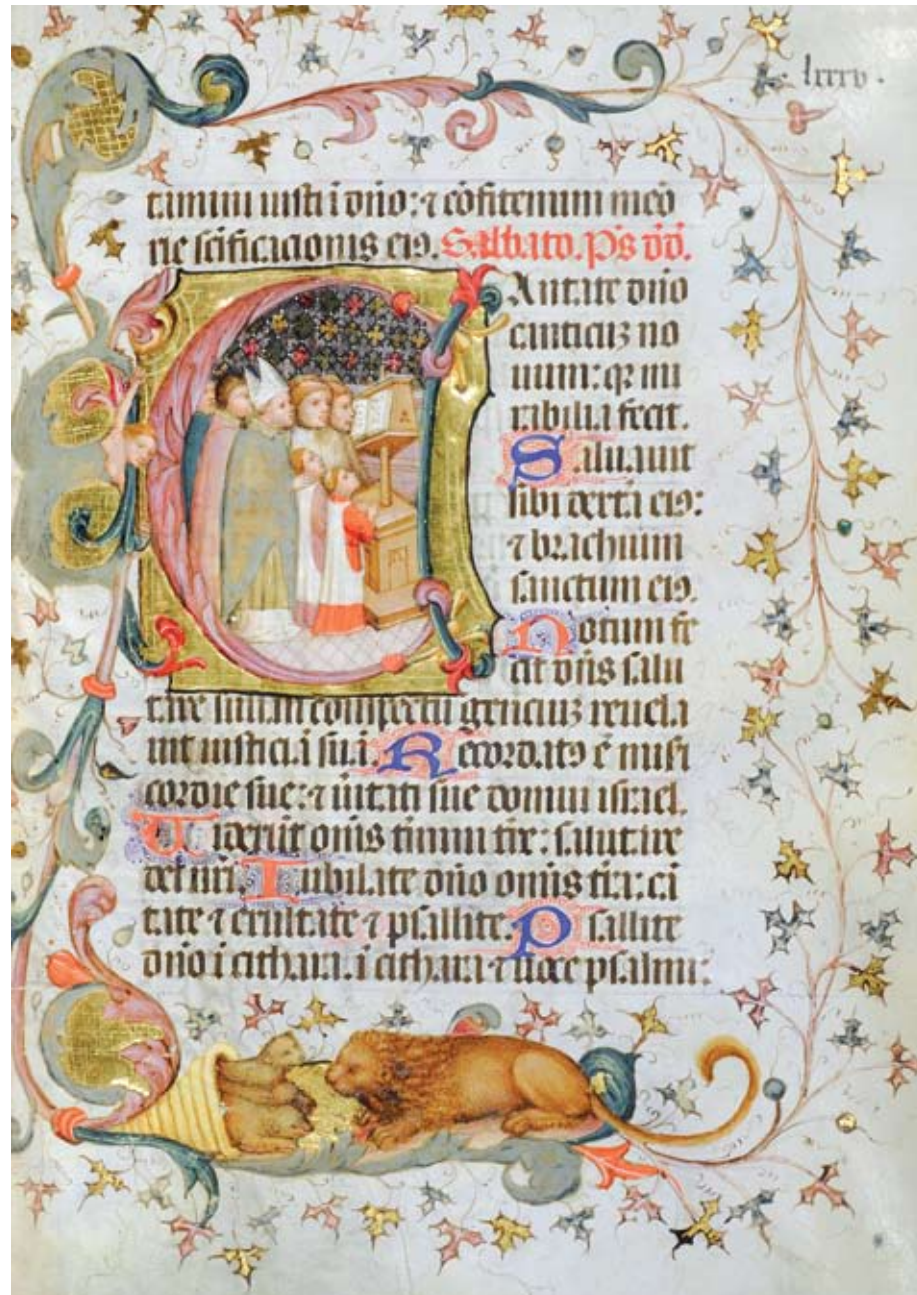 lxxxv.
tamini iusti i dño: ⁊ cõfitemini meõ
rie sc̃ificacionis eiꝰ. Sabbato. Ps dd̃.
Antate dño
canticuꝫ no
uum: qꝛ mi
rabilia fecit.
Saluauit
sibi dext̃a eiꝰ:
⁊ brachium
sanctum eiꝰ.
Notum fe
cit dñs salu
tare suu; in conspectu genciuꝫ reuela
uit iusticia sua. Recordatꝰ ẽ misi
cordie sue: ⁊ ũitati sue domui israel.
Uiderũt om̃s t̃mini tr̃e: salutare
dei nr̃i. Iubilate dño om̃is tr̃a: ca
tate ⁊ exultate ⁊ psallite. Psallite
dño i cithara. i cithara ⁊ uoce psalmi: